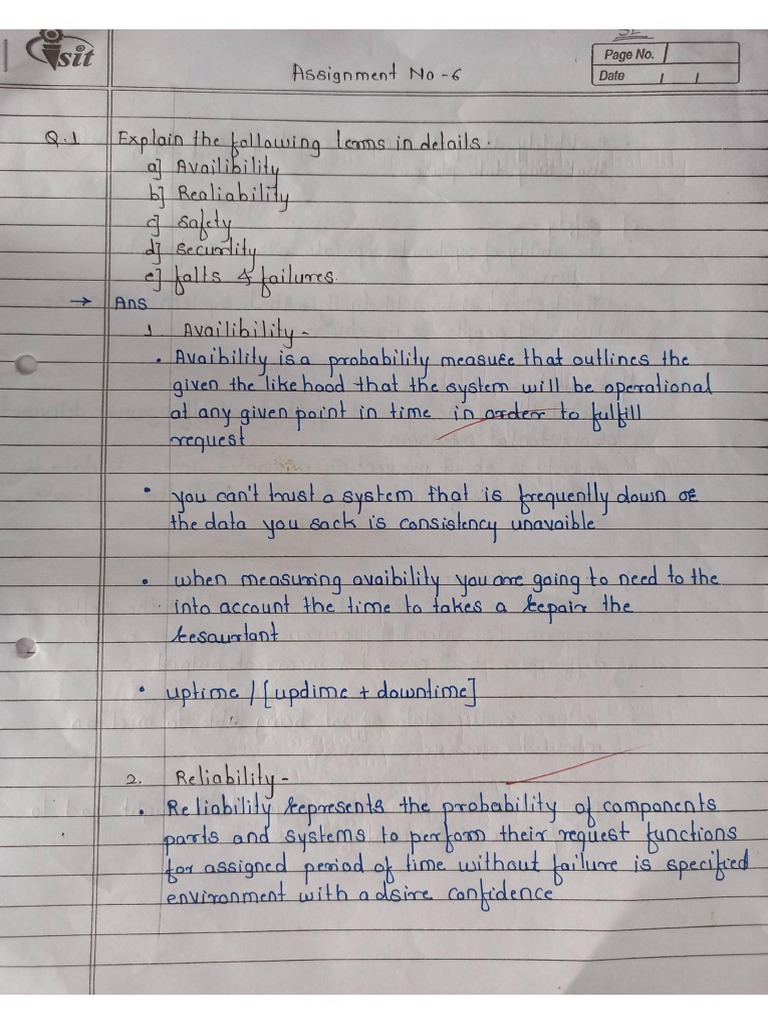 sit
Page No.
Date
Assignment No - 6
Q.1 Explain the following terms in details.
a] Availibility
b] Realiability
c] Safety
d] Securdity
e] falts & failures.
→ Ans
1. Availibility -
• Avaibility is a probability measure that outlines the
given the like hood that the system will be operational
at any given point in time in order to fulfill
request
• you can't trust a system that is frequently down or
the data you sack is consistency unavaible
• when measuring avaibility you are going to need to the
into account the time to takes a repair the
resaurtant
• uptime / [updime + downtime]
2. Reliability -
• Reliability represents the probability of components
parts and systems to perform their request functions
for assigned period of time without failure is specified
environment with a dsire confidence